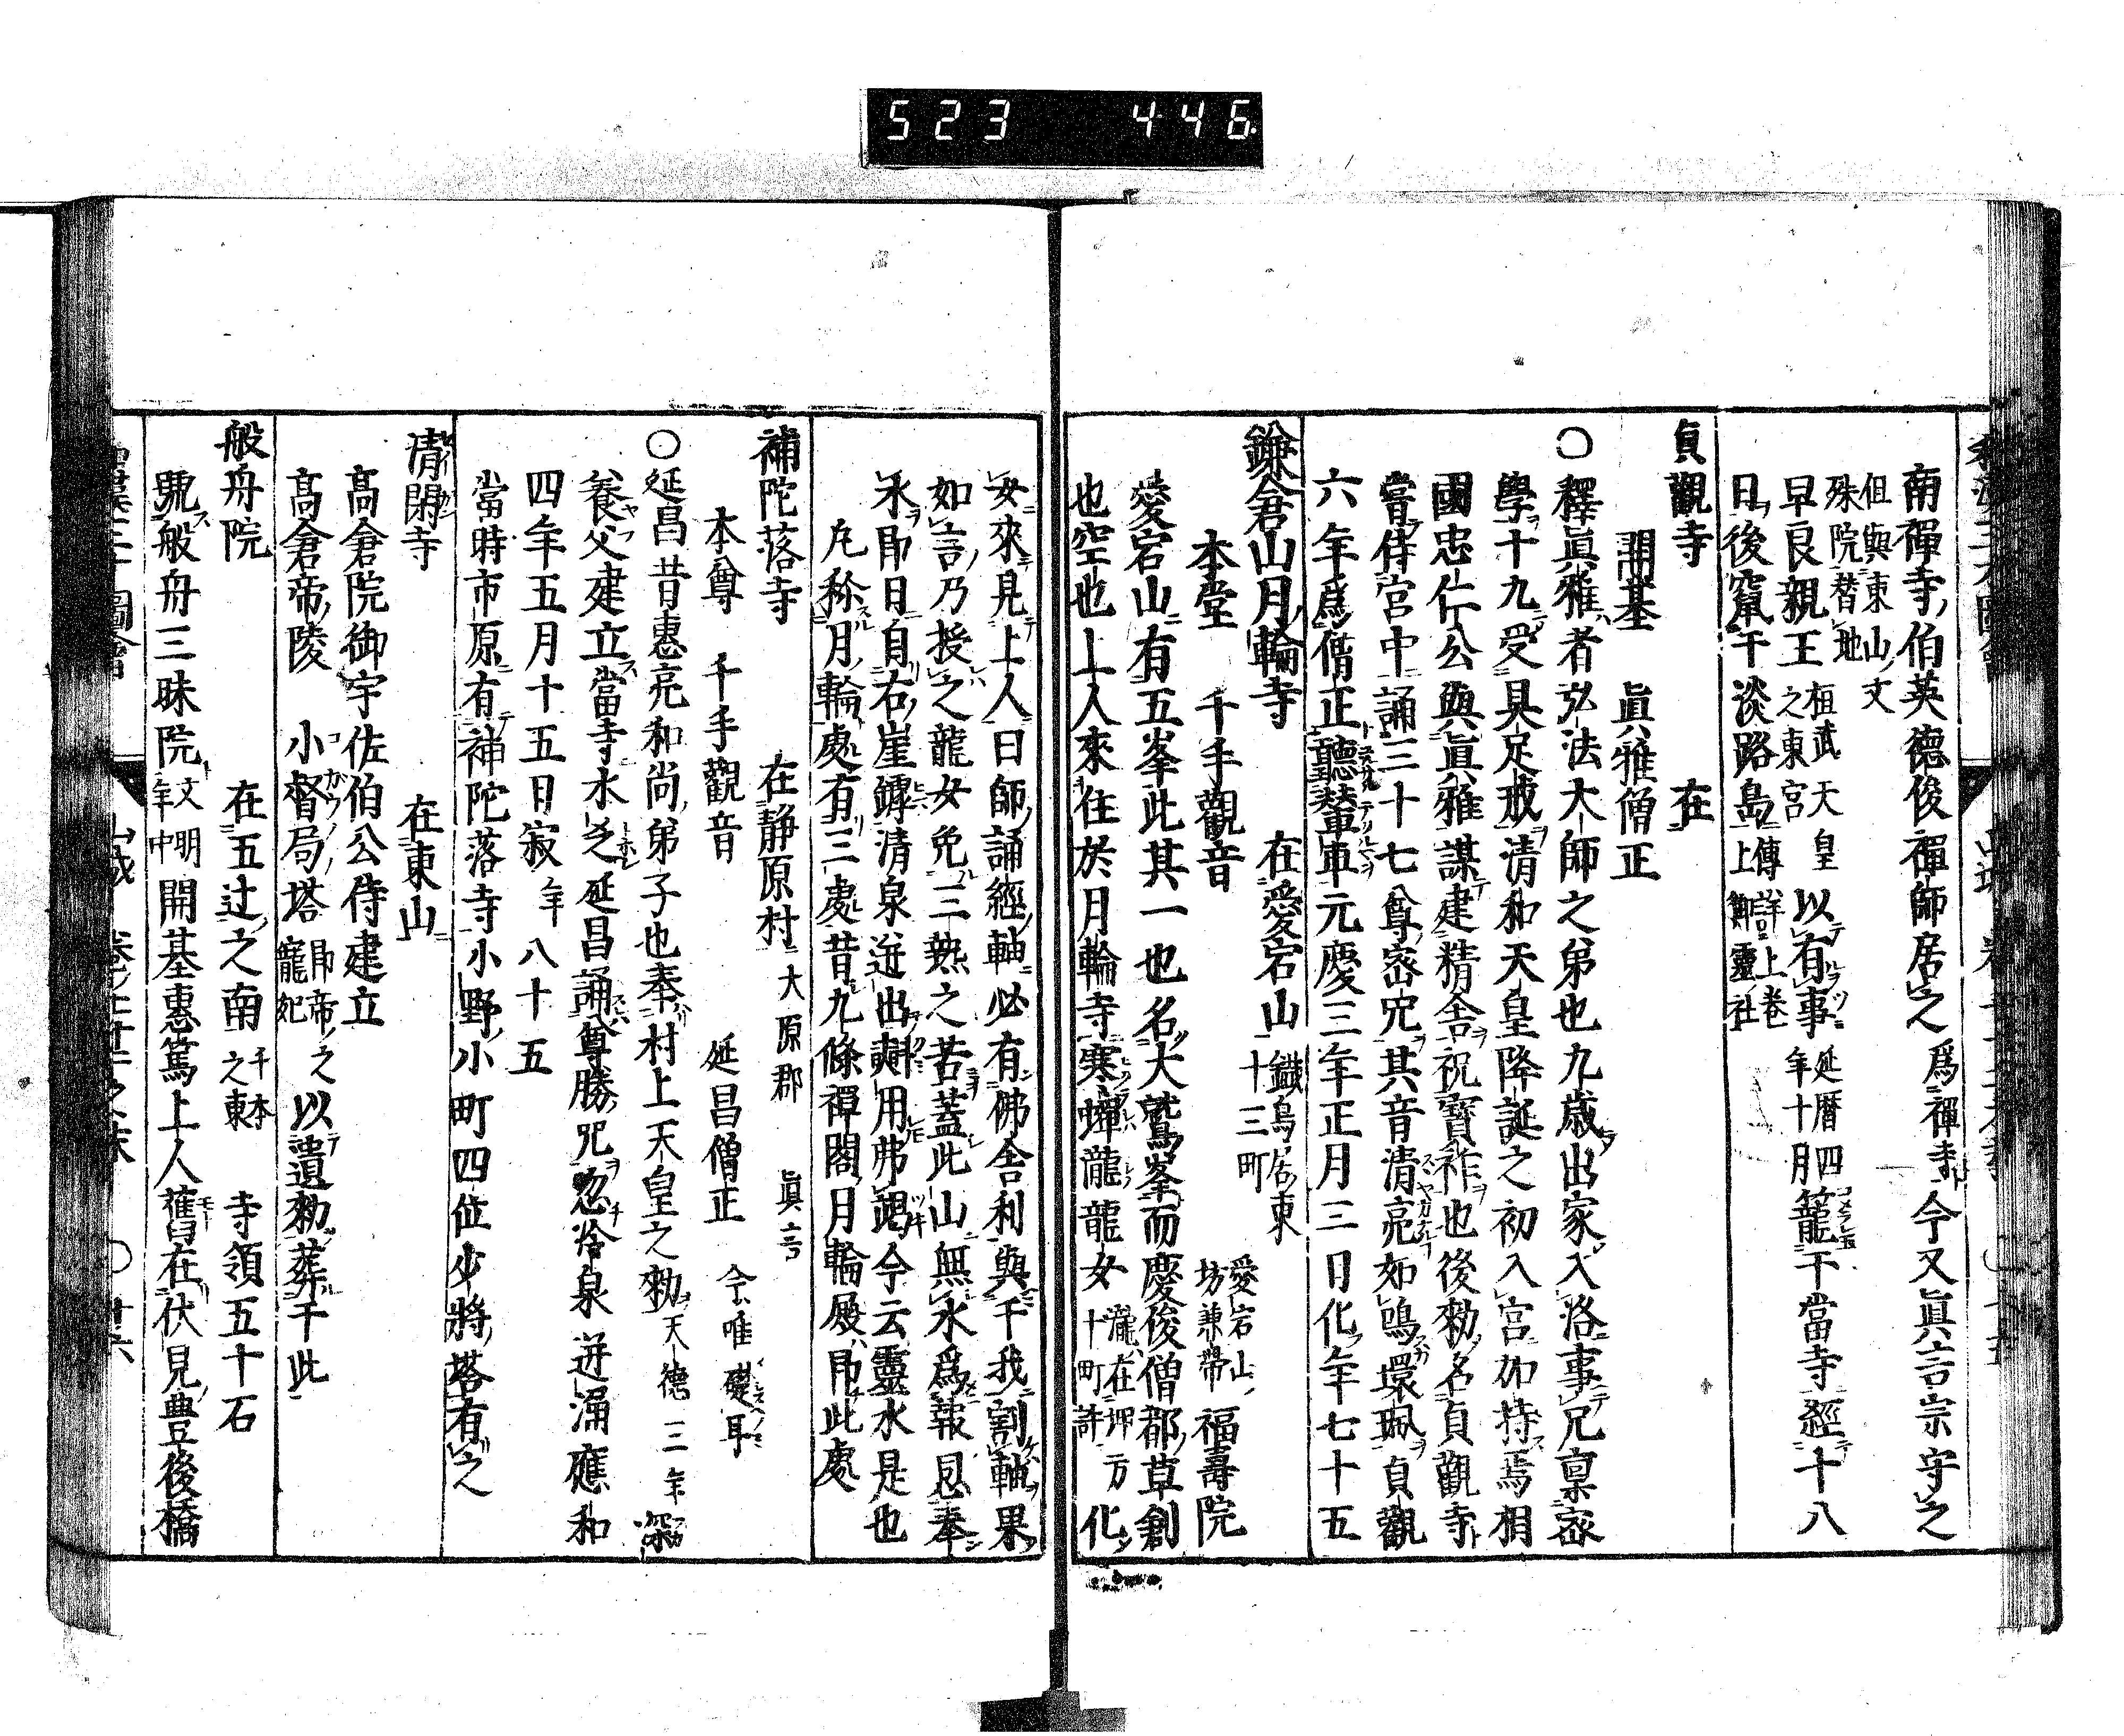 523 446
南禪寺伯英德俊禪師居之爲禪寺今又眞言宗守之
但與東山文
殊院替地
早良親王桓武天皇之東宮以有事延暦四年十月籠于當寺經十八
日後竄于淡路島傳詳上卷上御靈社
貞觀寺 在
開基 眞雅僧正
〇釋眞雅者弘法大師之弟也九歳出家入洛事兄稟密
學十九受具足戒清和天皇降誕之初入宮加持焉相
國忠仁公與眞雅謀建精舍祝寶祚也後勅名貞觀寺
嘗侍宮中誦三十七尊密咒其音清亮如鳴環珮貞觀
六年爲僧正聽輦車元慶三年正月三日化年七十五
鎌倉山月輪寺 在愛宕山鐵鳥居東十三町
本堂 千手觀音 愛宕山坊兼帶福壽院
愛宕山有五峯此其一也名大鷲峯而慶俊僧都草創
也空也上人來住於月輪寺寒蟬瀧龍女瀧在坤方十町許化
女來見上人曰師誦經軸必有佛舍利與干我割軸果
如言乃授之龍女免三熱之苦蓋此山無水爲報恩奉
水即日自右崖鏬清泉迸出㪺用弗竭今云靈水是也
凡稱月輪處有三處昔九條禪閤月輪殿即此處
補陀落寺 在静原村大原郡 眞言
本尊 千手觀音 延昌僧正 今唯礎耳
〇延昌昔惠亮和尚弟子也奉村上天皇之勅天德三年深
養父建立當寺水乏延昌誦尊勝咒忽冷泉迸涌應和
四年五月十五日寂年八十五
當時市原有補陀落寺小野小町四位少將塔有之
清閑寺 在東山
高倉院御宇佐伯公侍建立
高倉帝陵 小督局塔即帝之寵妃以遺勅葬于此
般舟院 在五辻之南千本之東 寺領五十石
號般舟三昧院文明年中開基惠篤上人舊在伏見豊後橋